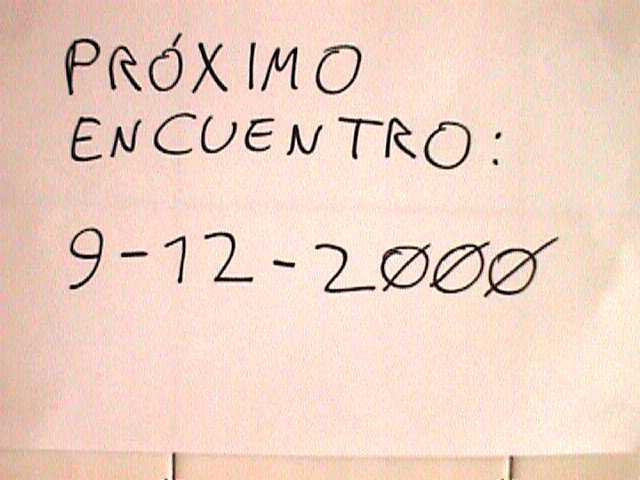 PRÓXIMO
ENCUENTRO:
9-12-2000